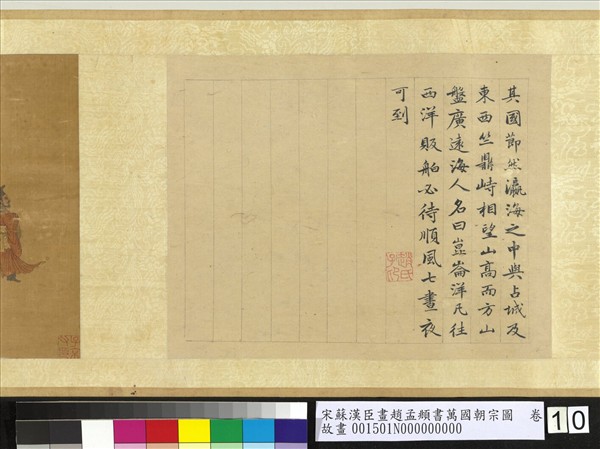 其國節然瀛海之中與占城及
東西竺鼎峙相望山高而方山
盤廣遠海人名曰崑崙洋凡往
西洋販舶必待順風七晝夜
可到
趙氏子昂
宋蘇漢臣畫趙孟頫書萬國朝宗圖 卷
故畫 001501N000000000
10